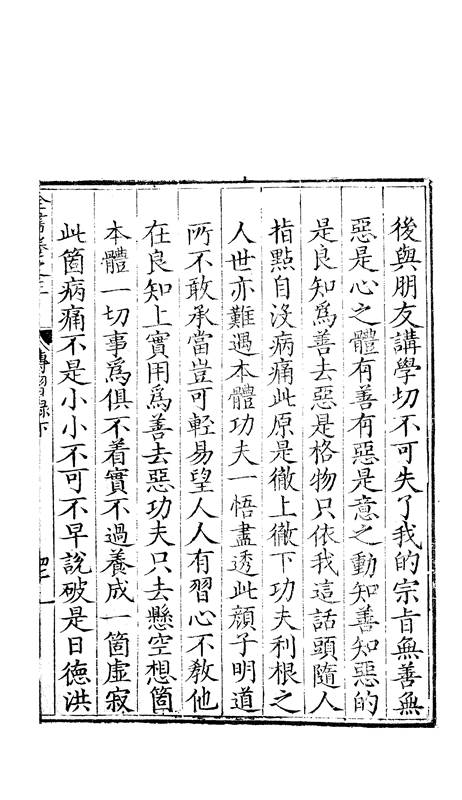 後與朋友講學切不可失了我的宗旨無善無
惡是心之體有善有惡是意之動知善知惡的
是良知爲善去惡是格物只依我這話頭隨人
指點自沒病痛此原是徹上徹下功夫利根之
人世亦難遇本體功夫一悟盡透此顔子明道
所不敢承當豈可輕易望人人有習心不敎他
在良知上實用爲善去惡功夫只去懸空想箇
本體一切事爲俱不着實不過養成一箇虛寂
此箇病痛不是小小不可不早說破是日德洪
全書卷之三
傳習錄下